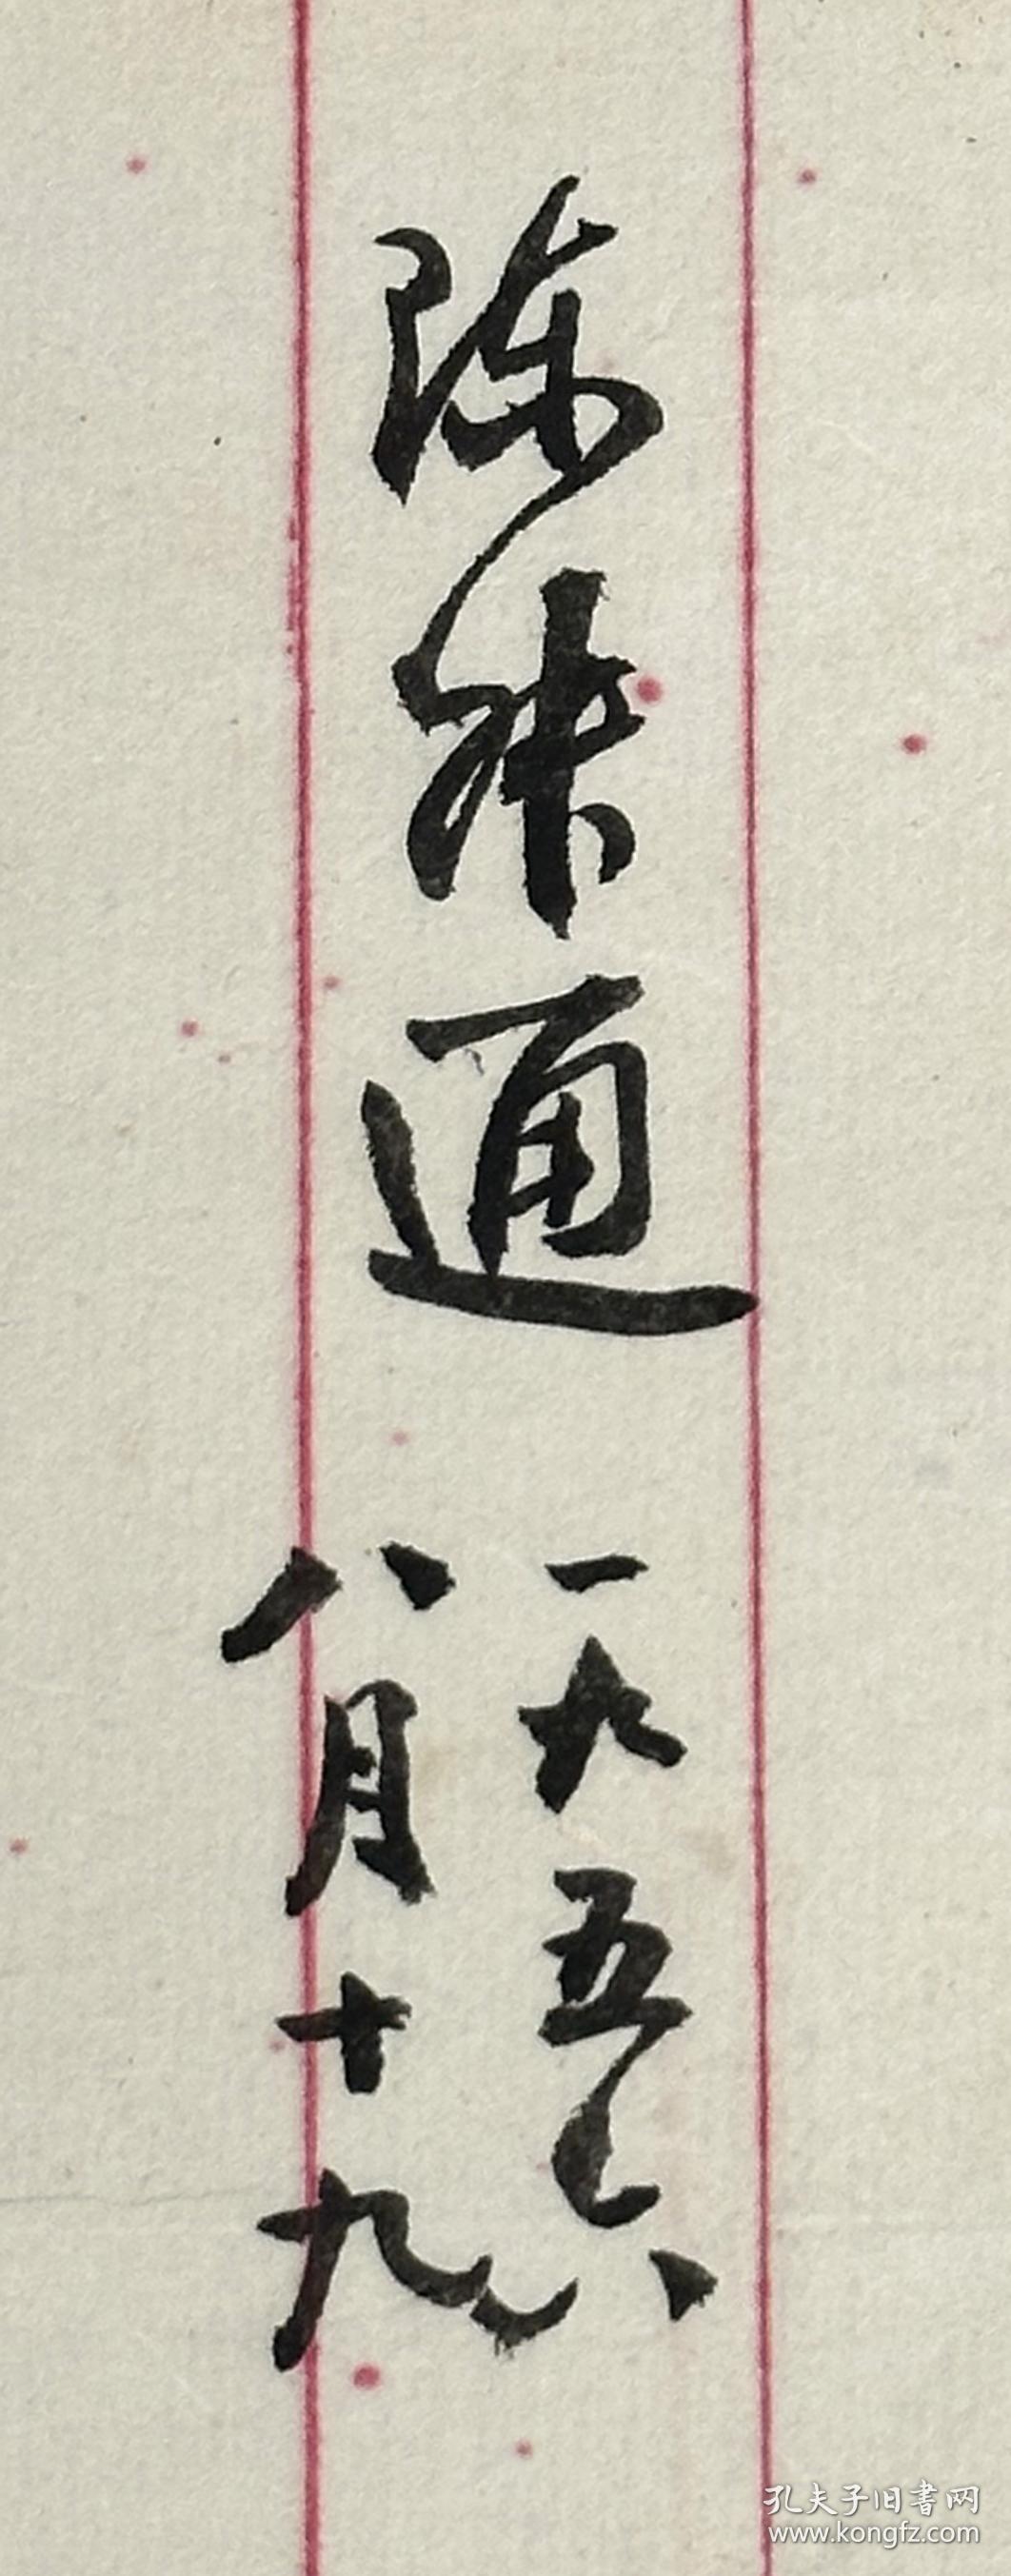 陈叔通
一九五六
八月十九
孔夫子旧書网
www.kongfz.com